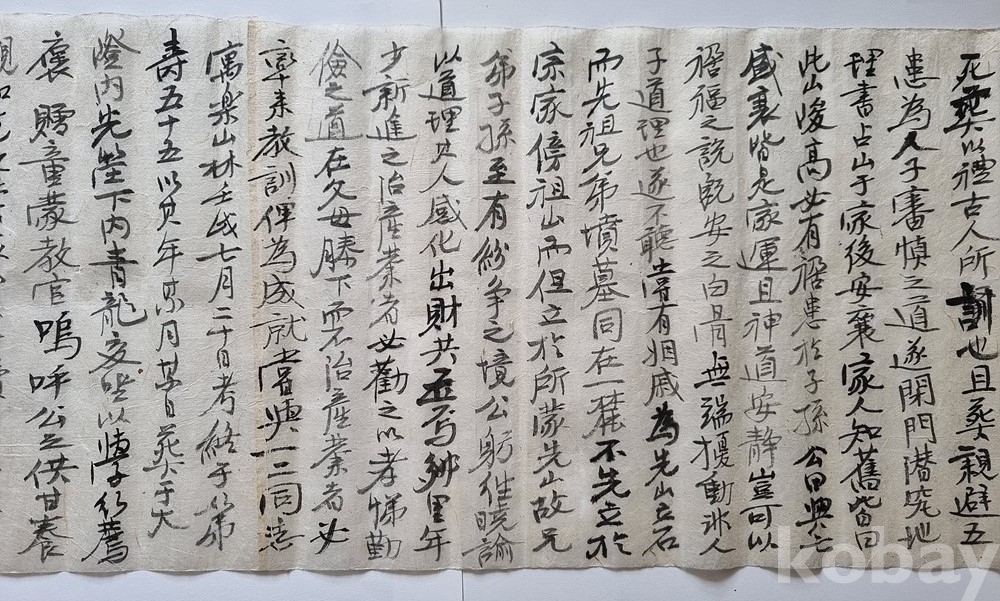 死葬以禮古人所訓也且葬親避五
患為人子審慎之道遂閉門潜究地
理書占山于家後安襄家人知舊皆曰
此山峻高必有禍患於子孫公曰興亡
盛衰皆是家運且神道安静豈可以
禍福之說既安之白骨無端擾動非人
子道理也遂不聽嘗有姻戚為先山立石
而先祖兄弟墳墓同在一麓不先立於
宗家傍祖山而但立於所蒙先山故兄
弟子孫至有紛争之境公躬往曉諭
以道理其人感化出財共並焉鄉里年
少新進之治產業者必勸之以孝悌勤
儉之道在父母膝下而不治產業者必
率来教訓俾為成就嘗與一二同志
寓楽山林壬戌七月二十日考終于第
壽五十五以其年某月某日葬于大
先塋下内青龍交
褒贈童蒙教官嗚呼公之供甘養
親
kobay